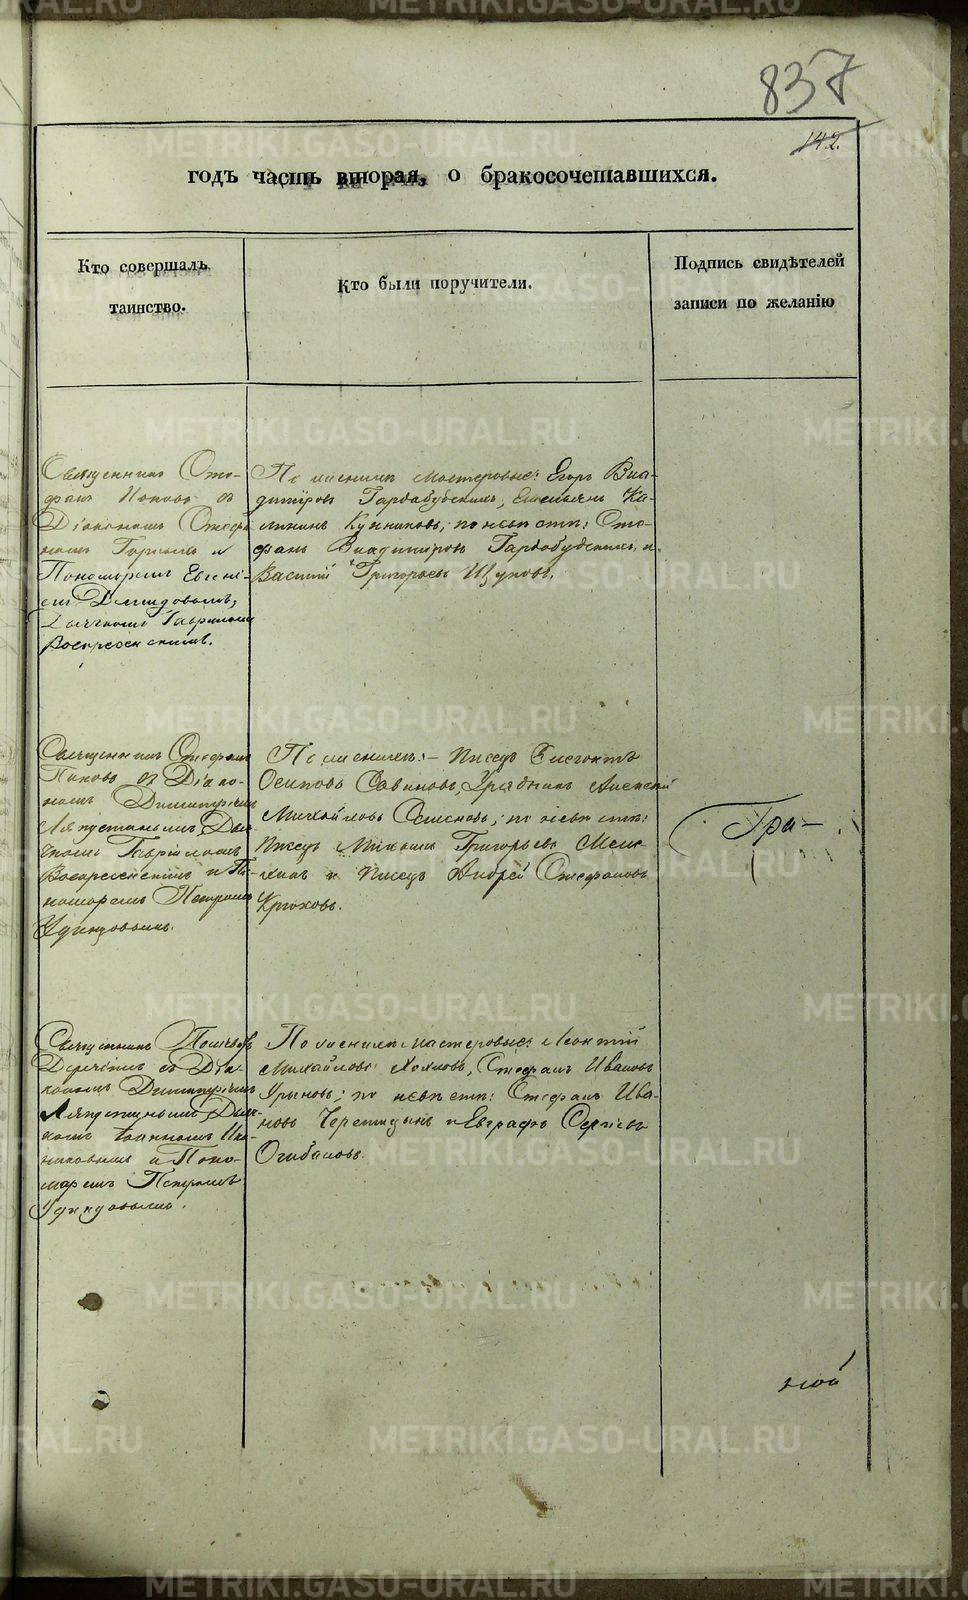 837
142.
годъ часть вторая, о бракосочетавшихся.
Кто совершалъ
таинство.
Кто были поручители.
Подпись свидѣтелей
записи по желанію
Священникъ Сте-
фанъ Поповъ съ
Діакономъ Стефа
номъ и
Пономаремъ Евгені-
емъ Демидовымъ,
Дьячкомъ Гавриломъ
Воскресенскимъ.
По женихѣ мастеровые: Егоръ Вла-
диміровъ Емельянъ Ка-
лининъ по невѣстѣ: Сте-
фанъ Владиміровъ и
Василій Григорьевъ Щуповъ.
Священникъ Стефанъ
Поповъ съ Діако-
номъ Димитріемъ
Ляпустинымъ, Дья
чкомъ Гавріиломъ
Воскресенскимъ и По-
номаремъ Петромъ
Удинцовымъ.
По женихѣ:- Писецъ
Осиповъ Савиновъ, Урядникъ Алексѣй
Михайловъ Семеновъ; по невѣстѣ:
Писецъ Михаилъ Григорьевъ Меле-
хинъ и Писецъ Андрей Стефановъ
Крюковъ.
Гри-
Священникъ
съ Діа-
кономъ Димитріемъ
Ляпустинымъ, Дьяч-
комъ Іоанномъ Ико-
никовымъ и Поно-
маремъ Петромъ
Удинцовымъ.
По женихѣ мастеровые: Леонтій
Михайловъ Стефанъ Ивановъ
по невѣстѣ: Стефанъ Ива-
новъ и Евграфъ Сергѣевъ
Огибаловъ.
ной
METRIKI.GASO-URAL.RU